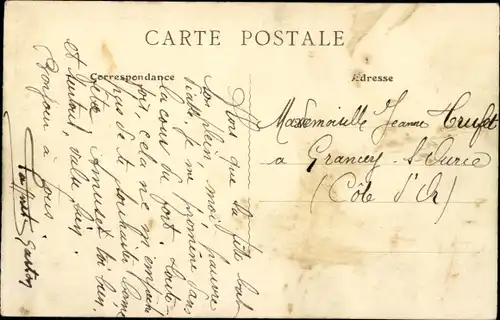 CARTE POSTALE
Correspondance
Adresse
Mademoiselle Jeanne Truffet
a Grancey s/ Ource
(Côte d'Or)
Alors que la fête bat
son plein, moi, pauvre
je me promène dans
la cour du fort.
fois, cela ne m'empêche
pas de te souhaiter bonne
fête. Amuse toi bien,
et surtout, valse bien.
Bonjour à tous.
Gaston